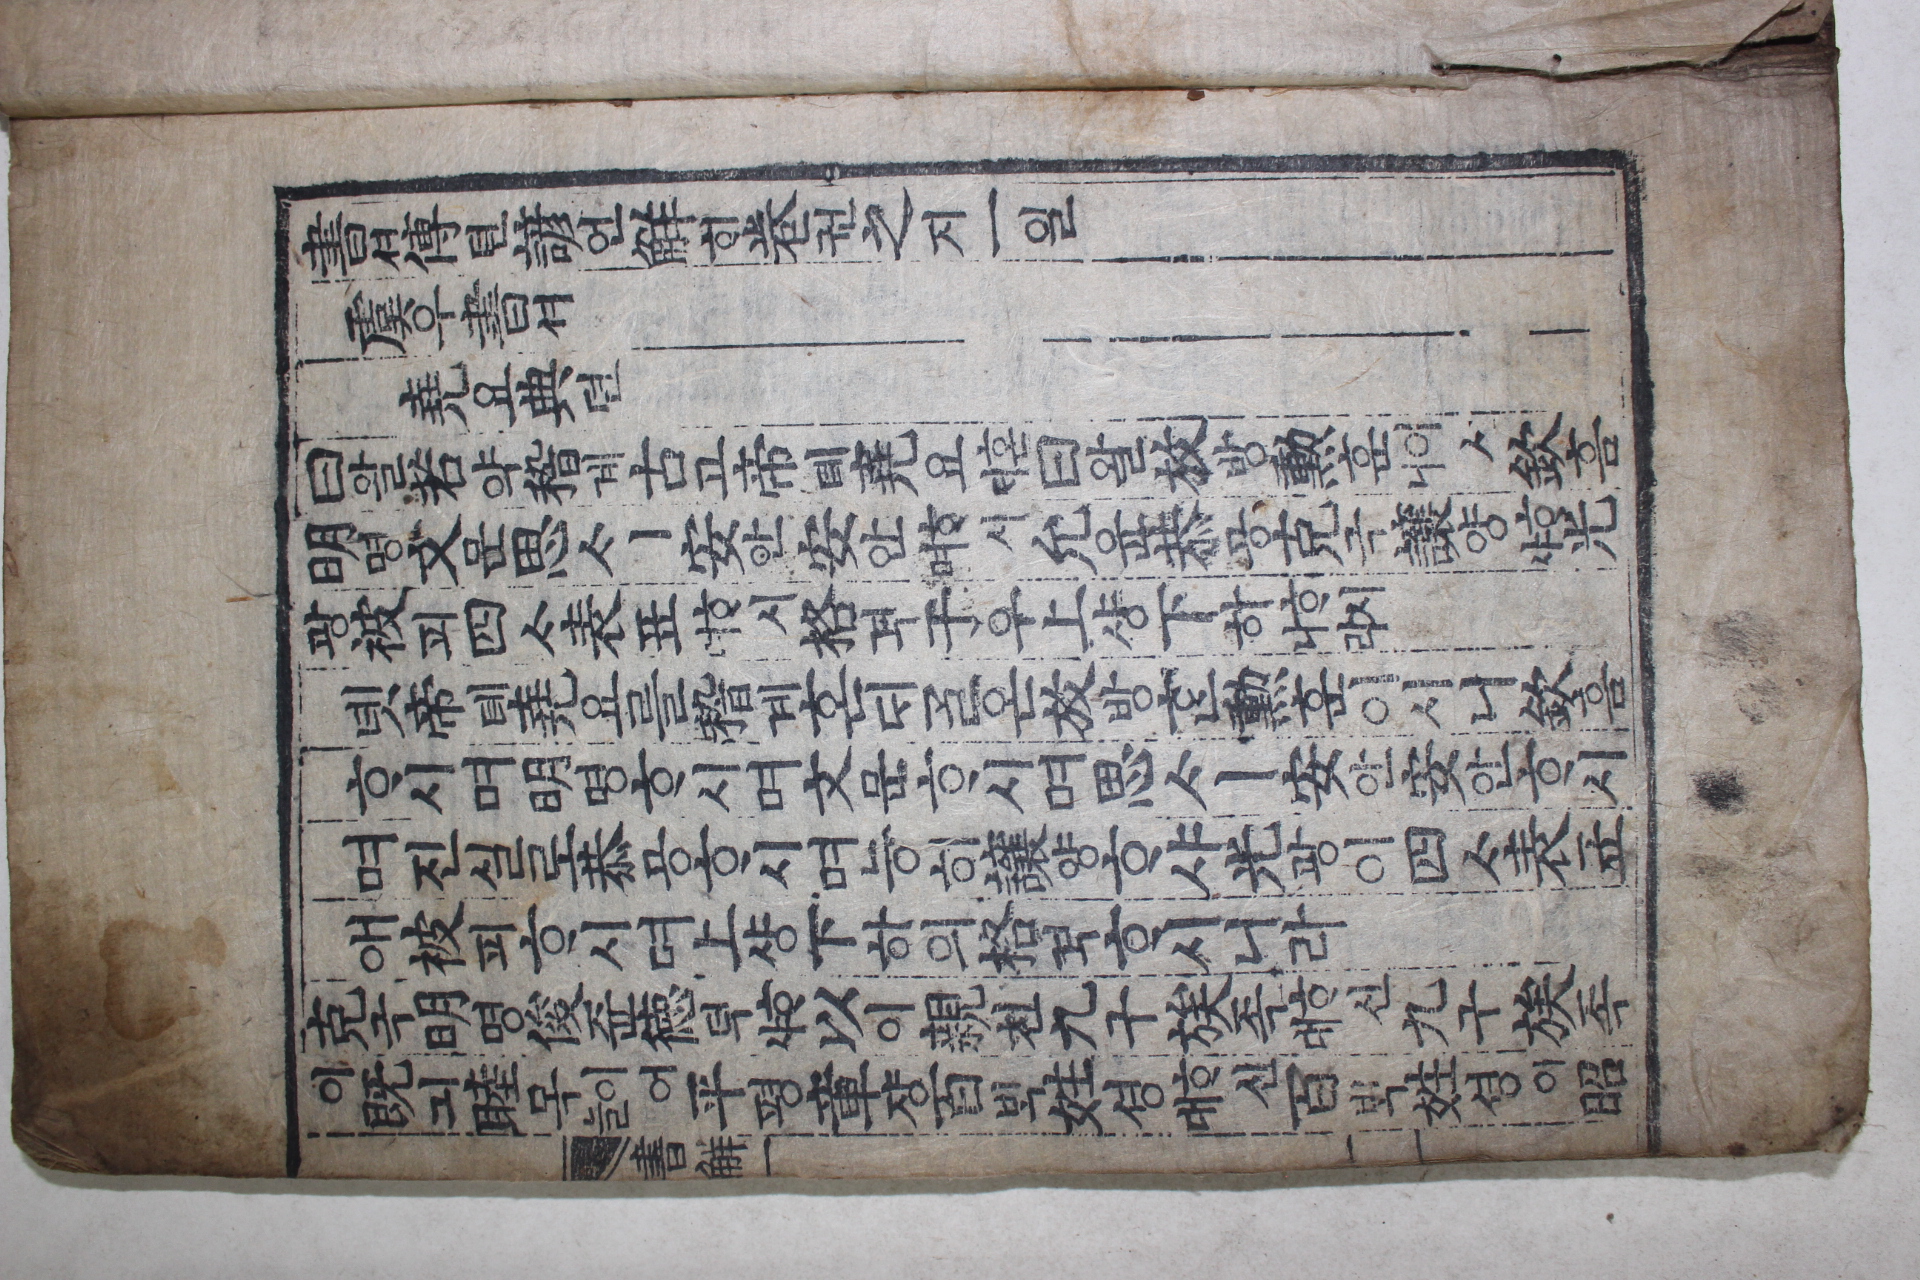 書셔傳뎐諺언解ᄒᆡ卷권之지一일
虞우書셔
堯요典뎐
曰왈若약稽계古고帝뎨堯요ᄒᆞᆫᄃᆡ曰왈放방勳훈이시니欽흠
明명文문思ᄉᆞㅣ安안安안ᄒᆞ시며允윤恭공克극讓양ᄒᆞ샤光
광被피四ᄉᆞ表표ᄒᆞ시며格격于우上샹下하ᄒᆞ시니라
녯帝뎨堯요를稽계ᄒᆞᆫᄃᆡ ᄀᆞᆯ온放방ᄒᆞᆫ勳훈이시니欽흠
ᄒᆞ시며明명ᄒᆞ시며文문ᄒᆞ시며思ᄉᆞㅣ安안安안ᄒᆞ시
며진실로恭공ᄒᆞ시며능히讓양ᄒᆞ샤光광이四ᄉᆞ表표
애被피ᄒᆞ시며上샹下하의格격ᄒᆞ시니라
克극明명俊쥰德덕ᄒᆞ샤以이親친九구族족ᄒᆞ신대九구族족
이旣긔睦목이어ᄂᆞᆯ平평章쟝百ᄇᆡᆨ姓셩ᄒᆞ신대百ᄇᆡᆨ姓셩이昭
書解一